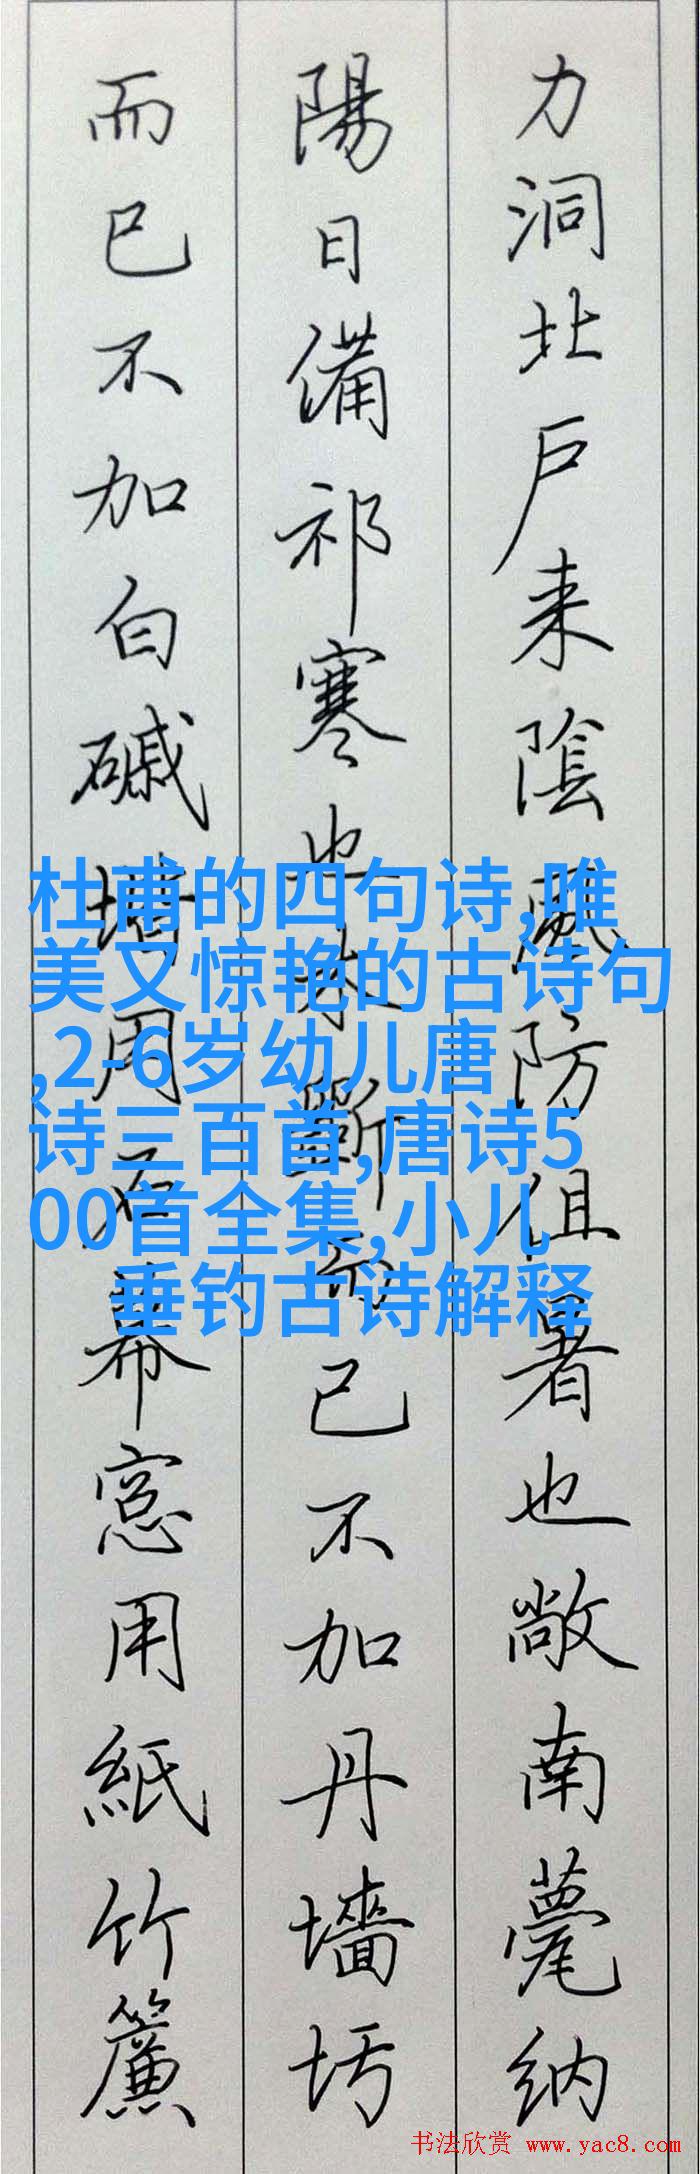 力洞北戶来陰風防徂暑也敞南甍纳
陽日備祁寒也木斲而已不加丹墻圬
而已不加白磩堦用石幕窓用紙竹簾
杜甫的四句诗,唯
美又惊艳的古诗句
,2-6岁幼儿唐
诗三百首,唐诗5
00首全集,小儿
垂钓古诗解释
书法欣赏 www.yac8.com